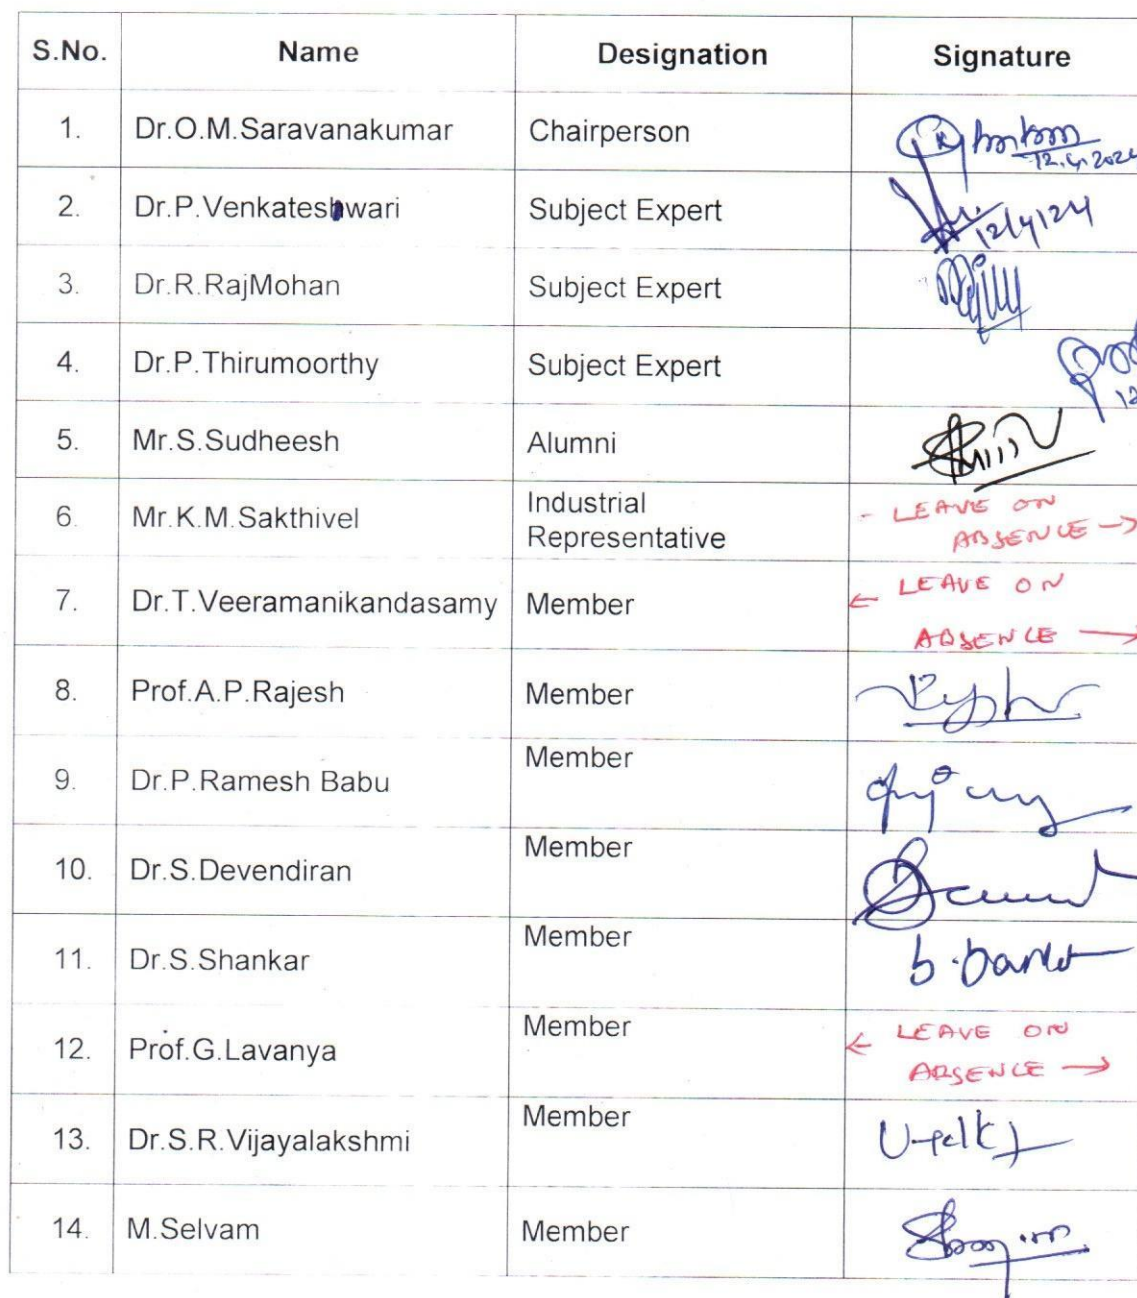 S.No. Name Designation Signature
1. Dr.O.M.Saravanakumar Chairperson
12.4.2024
2. Dr.P.Venkateshwari Subject Expert
12/4/24
3. Dr.R.RajMohan Subject Expert
4. Dr.P.Thirumoorthy Subject Expert
12
5. Mr.S.Sudheesh Alumni
6. Mr.K.M.Sakthivel Industrial - LEAVE ON
Representative ABSENCE →
7. Dr.T.Veeramanikandasamy Member ← LEAVE ON
ABSENCE →
8. Prof.A.P.Rajesh Member
9. Dr.P.Ramesh Babu Member
10. Dr.S.Devendiran Member
11. Dr.S.Shankar Member
12. Prof.G.Lavanya Member ← LEAVE ON
ABSENCE →
13. Dr.S.R.Vijayalakshmi Member
14. M.Selvam Member